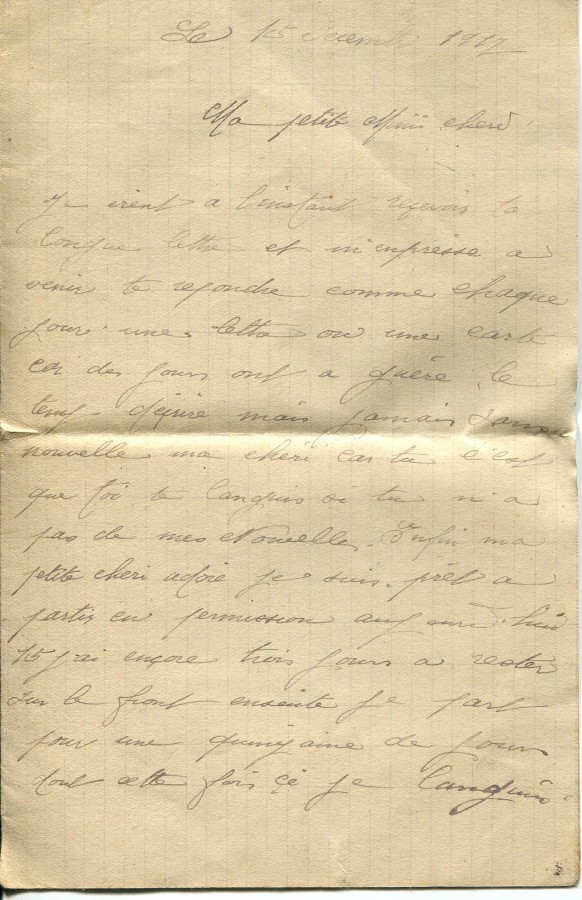 Le 15 décembre 1917
Ma petite Mimi chéri
Je vient a l'instant reçevoir ta
longue lettre et m'enpresse a
venir te repondre comme chaque
jour une lettre ou une carte
car des jours ont a guère le
temp décrire mais jamais sans
nouvelle ma chéri car tu c'est
que toi te languis si tu n'a
pas de mes Nouvelles. Enfin ma
petite cheri adoré je suis prêt a
partir en permission aujourd'hui
15 j'ai encore trois jours a rester
sur le front ensuite je part
pour une quinzaine de jours
dont cette fois çi je languis